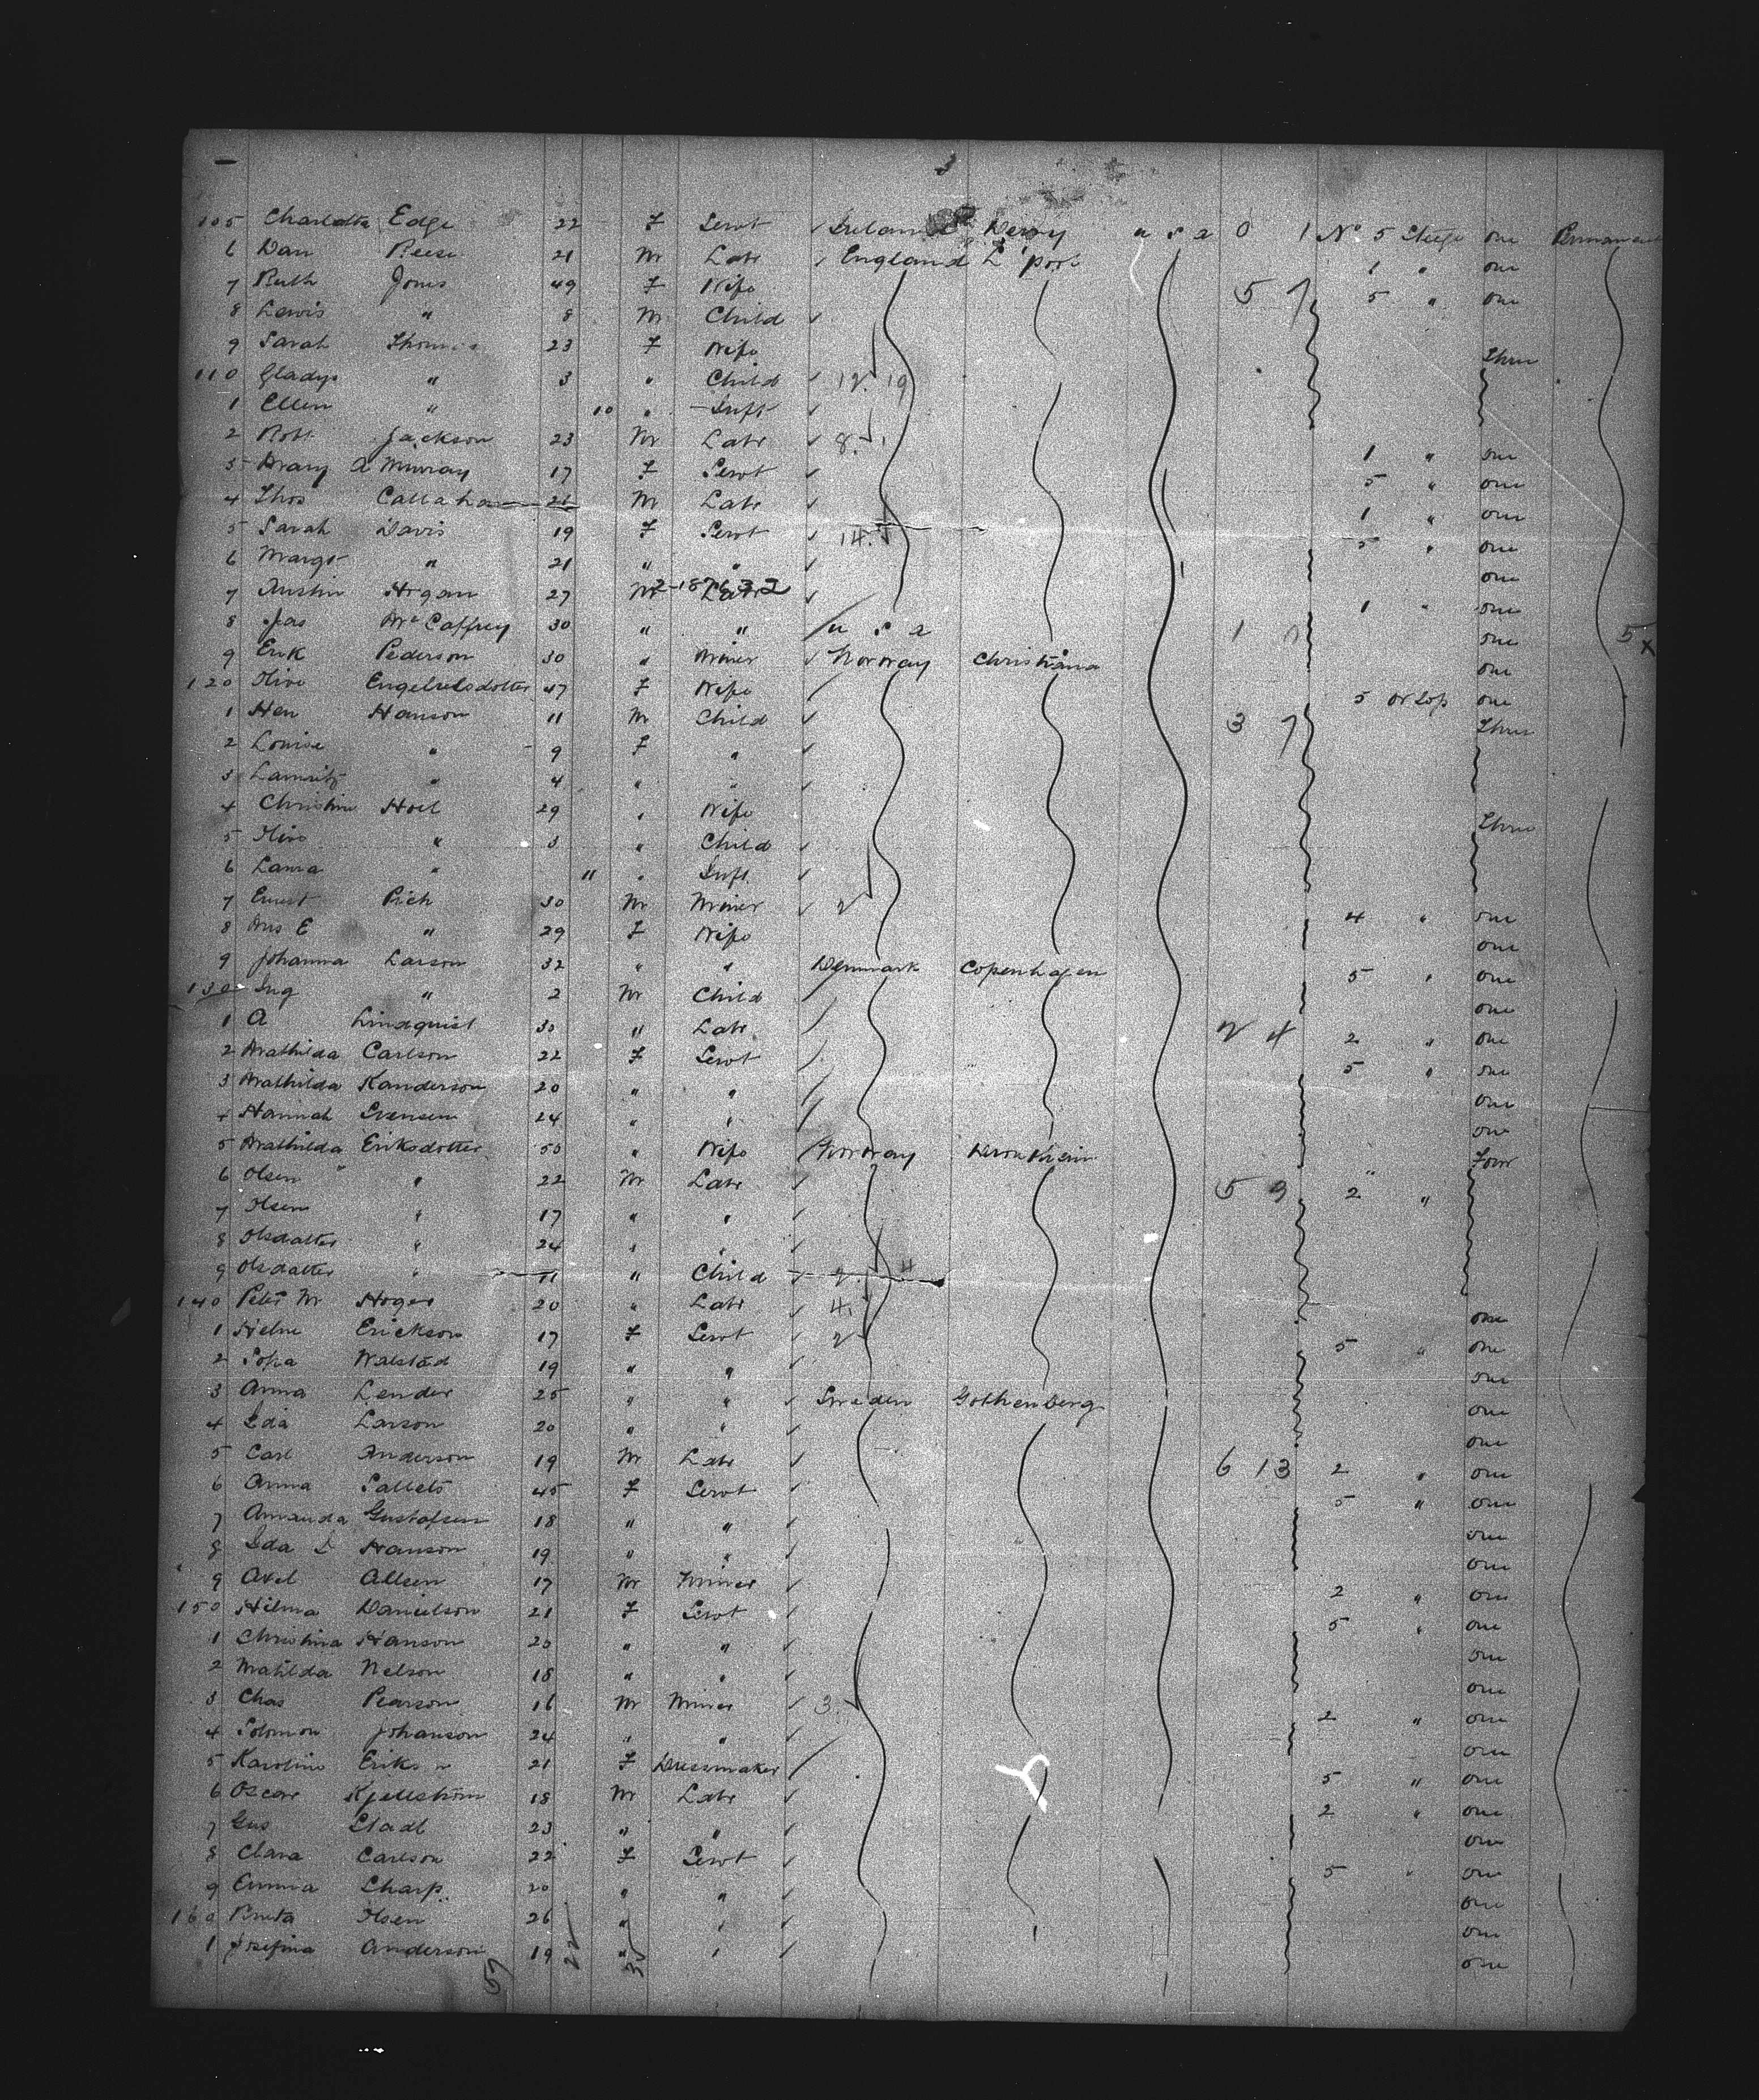 3
105 Charlotta Edge 22 F Servt Ireland Derry U S A 0 1 No 5 Steege one Permanent
6 Dan Reese 21 M Labr England L'pool 1 " one
7 Ruth Jones 49 F Wife 5 7 5 " one
8 Lewis " 8 M Child
9 Sarah Thomas 23 F Wife Three
110 Gladys " 3 " Child 12. 19
1 Ellen " 10 " Inft
2 Robt Jackson 23 M Labr 8. 1 " one
3 Mary A Murray 17 F Servt 5 " one
4 Thos Callahan 21 M Labr 1 " one
5 Sarah Davis 19 F Servt 14. 5 " one
6 Margt " 21 " " one
7 Austin Hogan 27 M Labr 1 " one
2-187632
8 Jas McCaffrey 30 " " U S A 1 one 5 x
9 Erik Pederson 30 " Miner Norway Christiana one
120 Olive 47 F Wife 5 or Lop one
1 Hen Hanson 11 M Child 3 7 Three
2 Louise " 9 F "
3 " 4 " "
4 Christine Hoel 29 " Wife Three
5 Olive " 3 " Child
6 Laura " 11 " Inft
7 Ernst Pich 30 M Miner 2 4 " one
8 Mrs E " 29 F Wife one
9 Johanna Larson 32 " " Denmark Copenhagen 5 " one
130 Ing " 2 M Child one
1 A Lindquist 30 " Labr 2 4 2 " one
2 Mathilda Carlson 22 F Servt 5 " one
3 Mathilda Kanderson 20 " " one
4 Hannah Svensen 24 " " one
5 Mathilda Eriksdotter 50 " Wife Norway Drontheim Four
6 Olsen " 22 M Labr 5 9 2 "
7 Olsen " 17 " "
8 Olsdatter " 24 " "
9 Olsdatter " 11 " Child 9. 4
140 Peter M Hoger 20 " Labr 4. one
1 Helne Erickson 17 F Servt 2 5 " one
2 Sofia Walstad 19 " " one
3 Anna Lender 25 " " Sweden Gothenberg one
4 Ida Larson 20 " " one
5 Carl Anderson 19 M Labr 6 13 2 " one
6 Anna 45 F Servt 5 " one
7 Amanda Gustafsen 18 " " one
8 Ida S Hanson 19 " " one
9 Axel Allsen 17 M Miner 2 " one
150 Hilma Danielson 21 F Servt 5 " one
1 Christina Hanson 20 " " one
2 Matilda Nelson 18 " " one
3 Chas Pearson 16 M Miner 3. 2 " one
4 Solomon Johanson 24 " " one
5 Karolino Erikson 21 F Dressmaker 5 " one
6 Oscar Kjellström 18 M Labr 2 " one
7 Gus Stadt 23 " " one
8 Clara Carlson 22 F Servt 5 " one
9 Emma Sharp 20 " " one
160 Olsen 26 " " one
1 Josefina Anderson 19 " " one
57 22 35